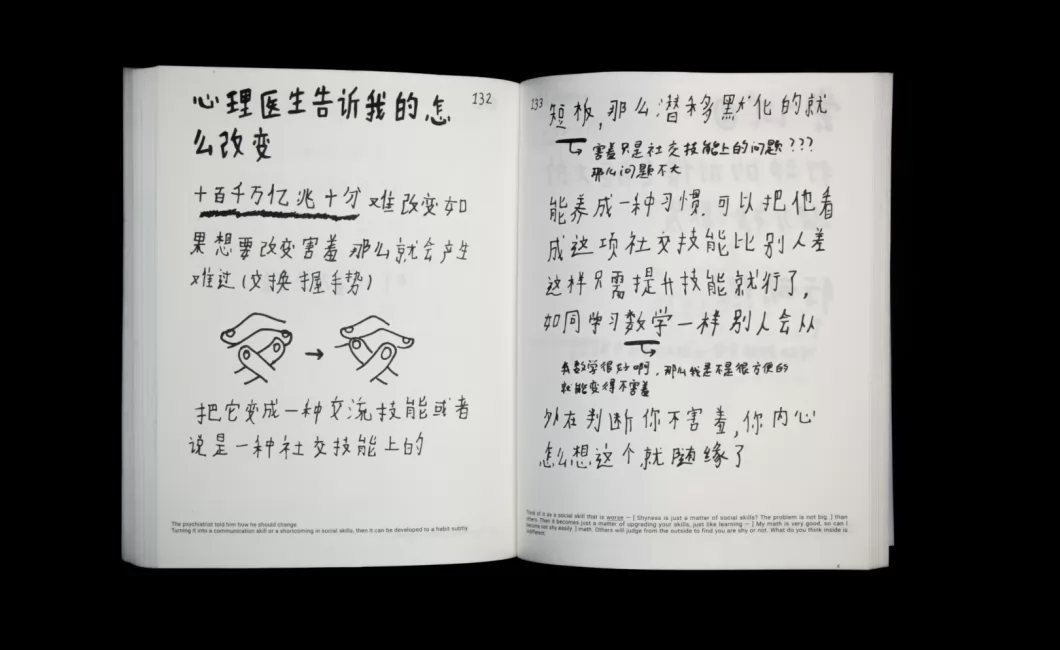 132
心理医生告诉我的怎
么改变
十百千万亿兆十分难改变如
果想要改变害羞那么就会产生
难过(交换握手势)
把它变成一种交流技能或者
说是一种社交技能上的
The psychiatrist told him how he should change
Turning it into a communication skill or a shortcoming in social skills, then it can be developed to a habit subtly
133
短板,那么潜移默化的就
害羞只是社交技能上的问题???
那么问题不大
能养成一种习惯.可以把他看
成这项社交技能比别人差
这样只需提升技能就行了,
如同学习数学一样别人会从
我数学很好啊.那么我是不是很方便的
就能变得不害羞
外在判断你不害羞,你内心
怎么想这个就随缘了
Think of it as a social skill that is worse — [ Shyness is just a matter of social skills? The problem is not big. ] than
others. Then it becomes just a matter of upgrading your skills, just like learning — [ My math is very good, so can I
become not shy easily. ] math. Others will judge from the outside to find you are shy or not. What do you think inside is
indifferent.